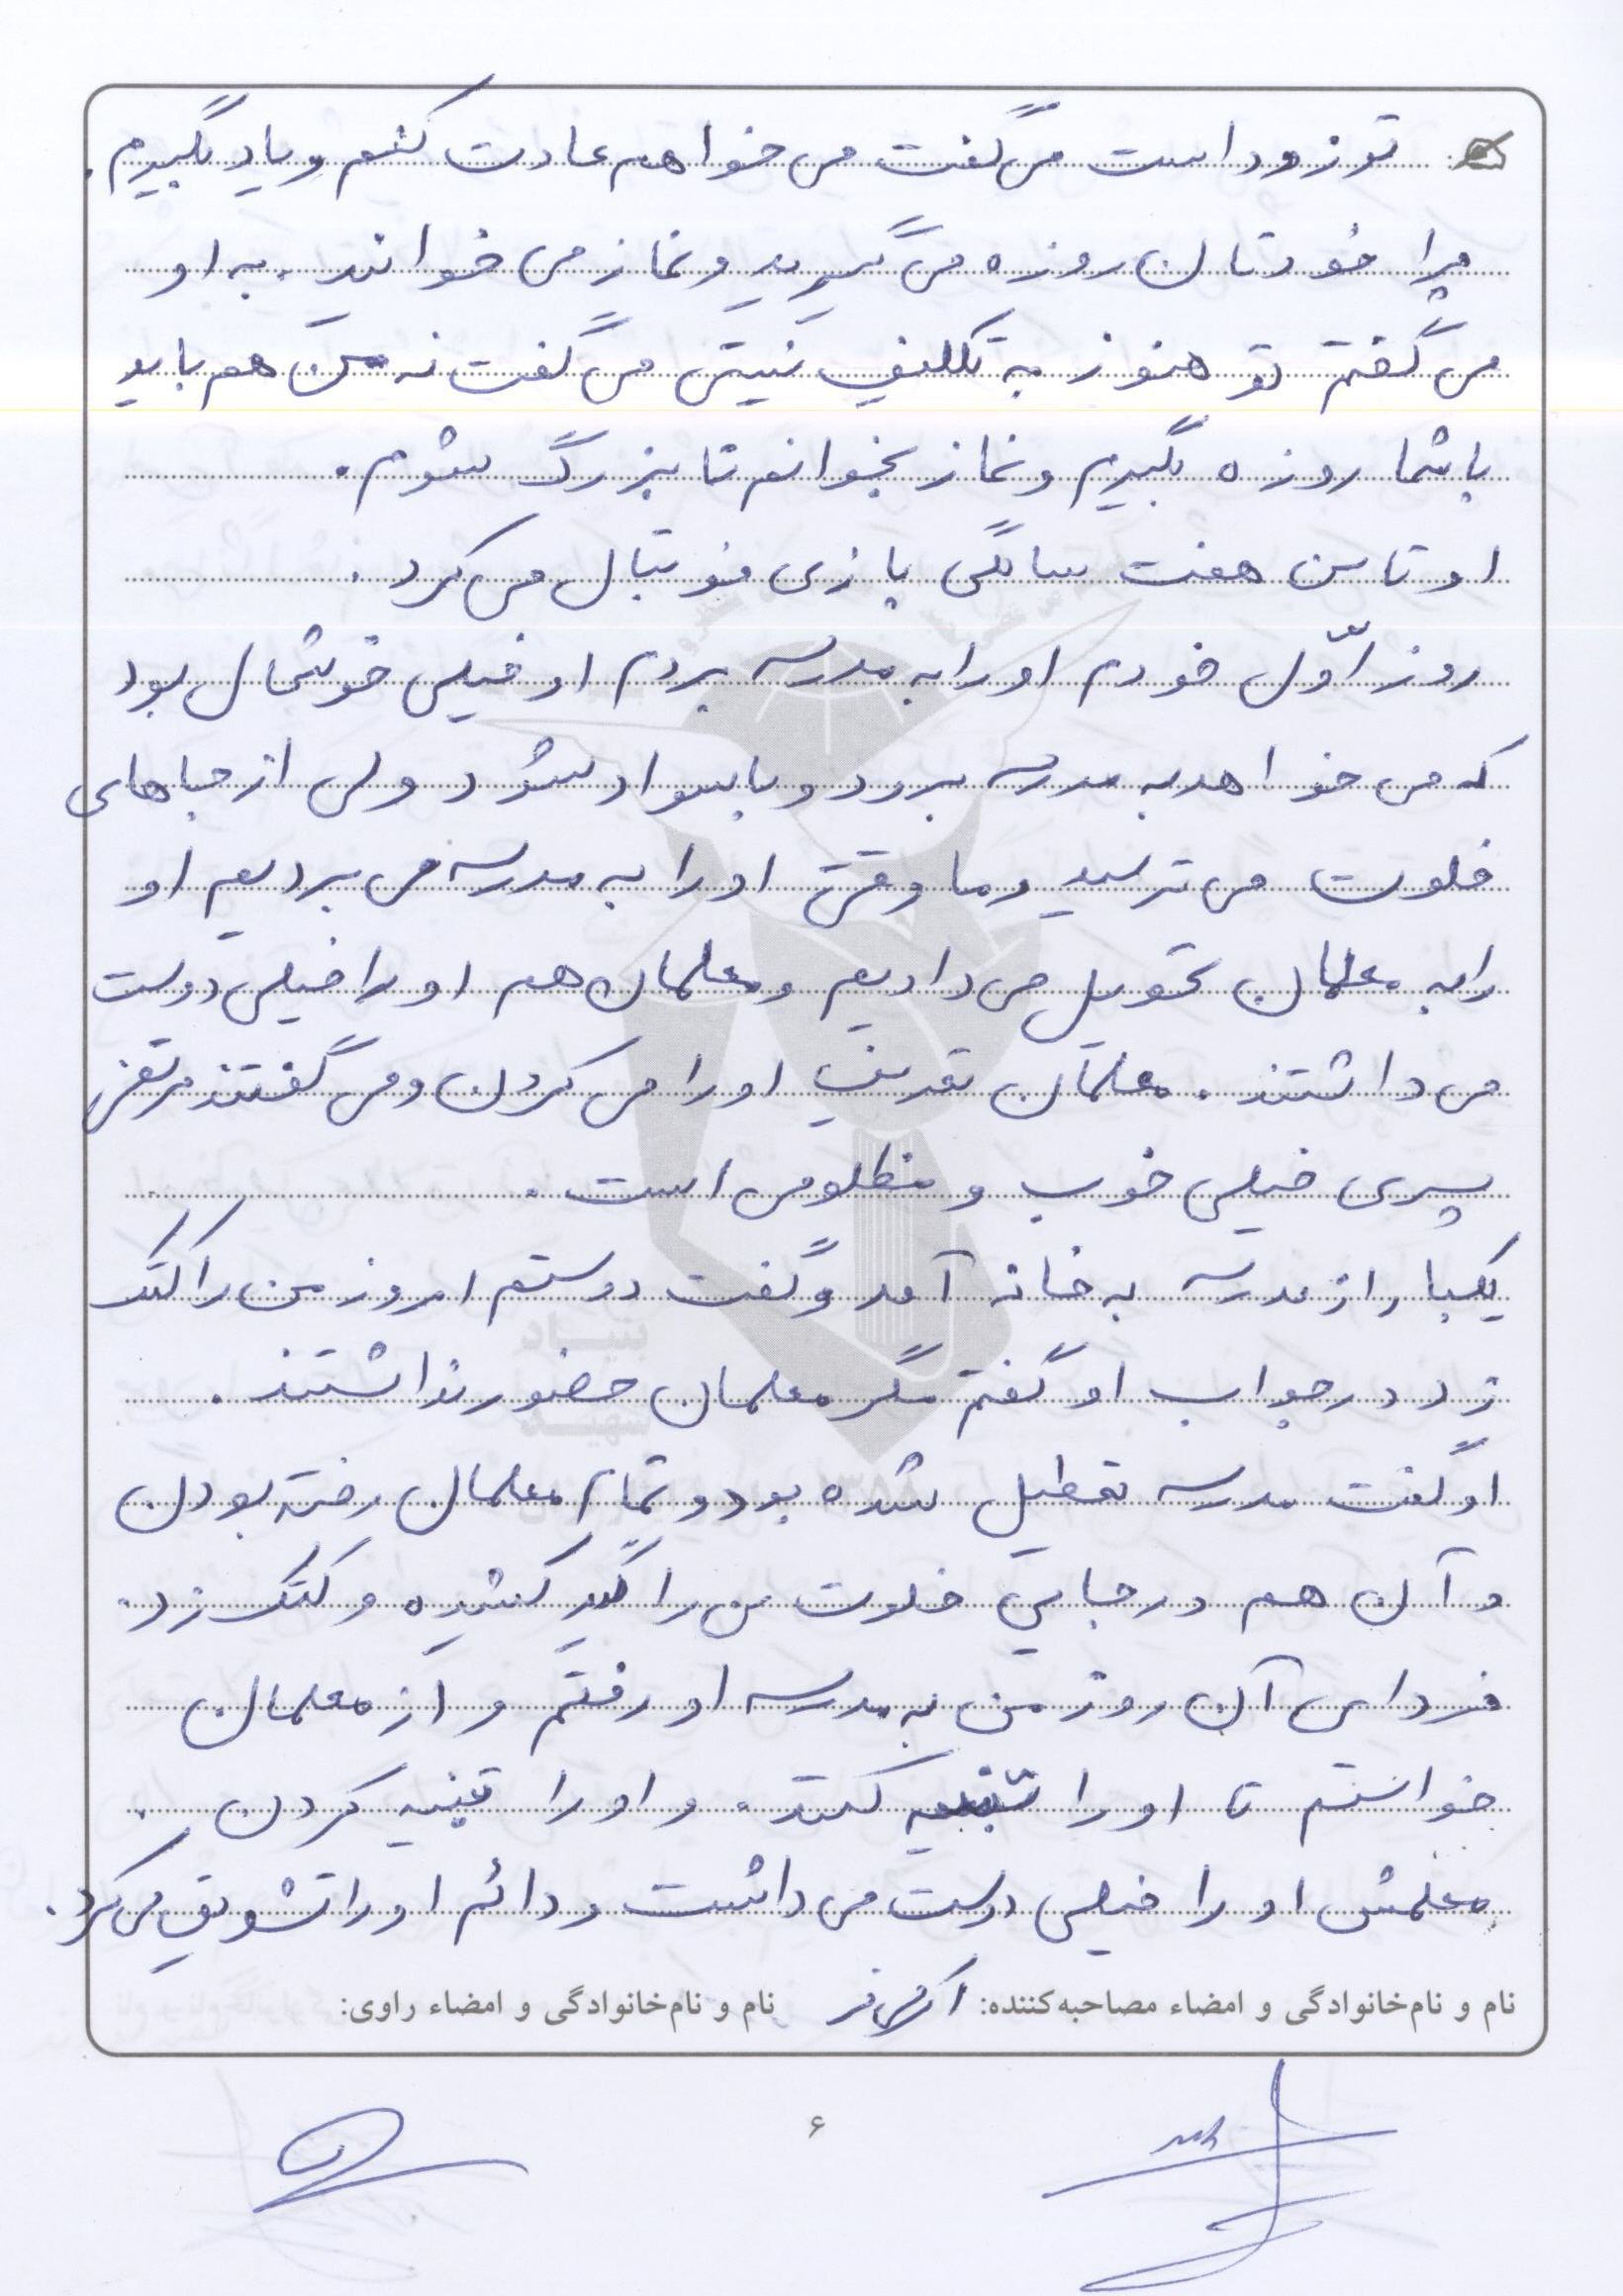 تو زود است می گفت می خواهم عادت کنم و یاد بگیرم.
چرا خودتان روزه می گیرید و نماز می خوانید. به او
می گفتم تو هنوز به تکلیف نیستی می گفت نه من هم باید
با شما روزه بگیرم و نماز بخوانم تا بزرگ بشوم.
او تا سن هفت سالگی بازی فوتبال می کرد.
روز اوّل خودم او را به مدرسه بردم او خیلی خوشحال بود
که می خواهد به مدرسه برود و باسواد بشود ولی از جاهای
خلوت می ترسید و ما وقتی او را به مدرسه می بردیم او
را به معلمان تحویل می دادیم و معلمان هم او را خیلی دوست
می داشتند. معلمان تعریف او را می کردن و می گفتند مرتضی
پسری خیلی خوب و مظلومی است.
یکبار از مدرسه به خانه آمد و گفت دوستم امروز من را کتک
زد در جواب او گفتم مگر معلمان حضور نداشتند.
او گفت مدرسه تعطیل شده بود و تمام معلمان رفته بودن
و آن هم در جایی خلوت من را گیر کشیده و کتک زد.
فردای آن روز من به مدرسه او رفتم و از معلمان
خواستم تا او را تنبیه کنند. و او را تنبیه کردن.
معلمش او را خیلی دوست می داشت و دائم او را تشویق می کرد.
نام و نام‌خانوادگی و امضاء مصاحبه‌کننده: نام و نام‌خانوادگی و امضاء راوی:
۶